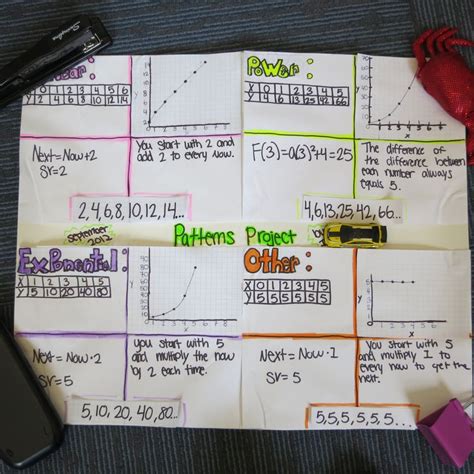 Linear:
X 0 1 2 3 4 5 6
Y 2 4 6 8 10 12 14
Next = Now+2
SV=2
You start with 2 and
add 2 to every Now.
2,4,6,8,10,12,14...
Power:
X 0 1 2 3 4 5
Y 4 6 13 25 42 66
The difference of
the difference between
each number always
equals 5.
4,6,13,25,42,66...
september
2012
Patterns Project
by
Exponential:
X 1 2 3 4 5
Y 5 10 20 40 80
Next = Now · 2
SV = 5
you start with 5
and multiply the now
by 2 each time.
5, 10, 20, 40, 80...
Other:
X 0 1 2 3 4 5
Y 5 5 5 5 5 5
Next = Now · 1
SV = 5
You start with 5
and multiply 1 to
every now to get the
next.
5,5,5,5,5,5...